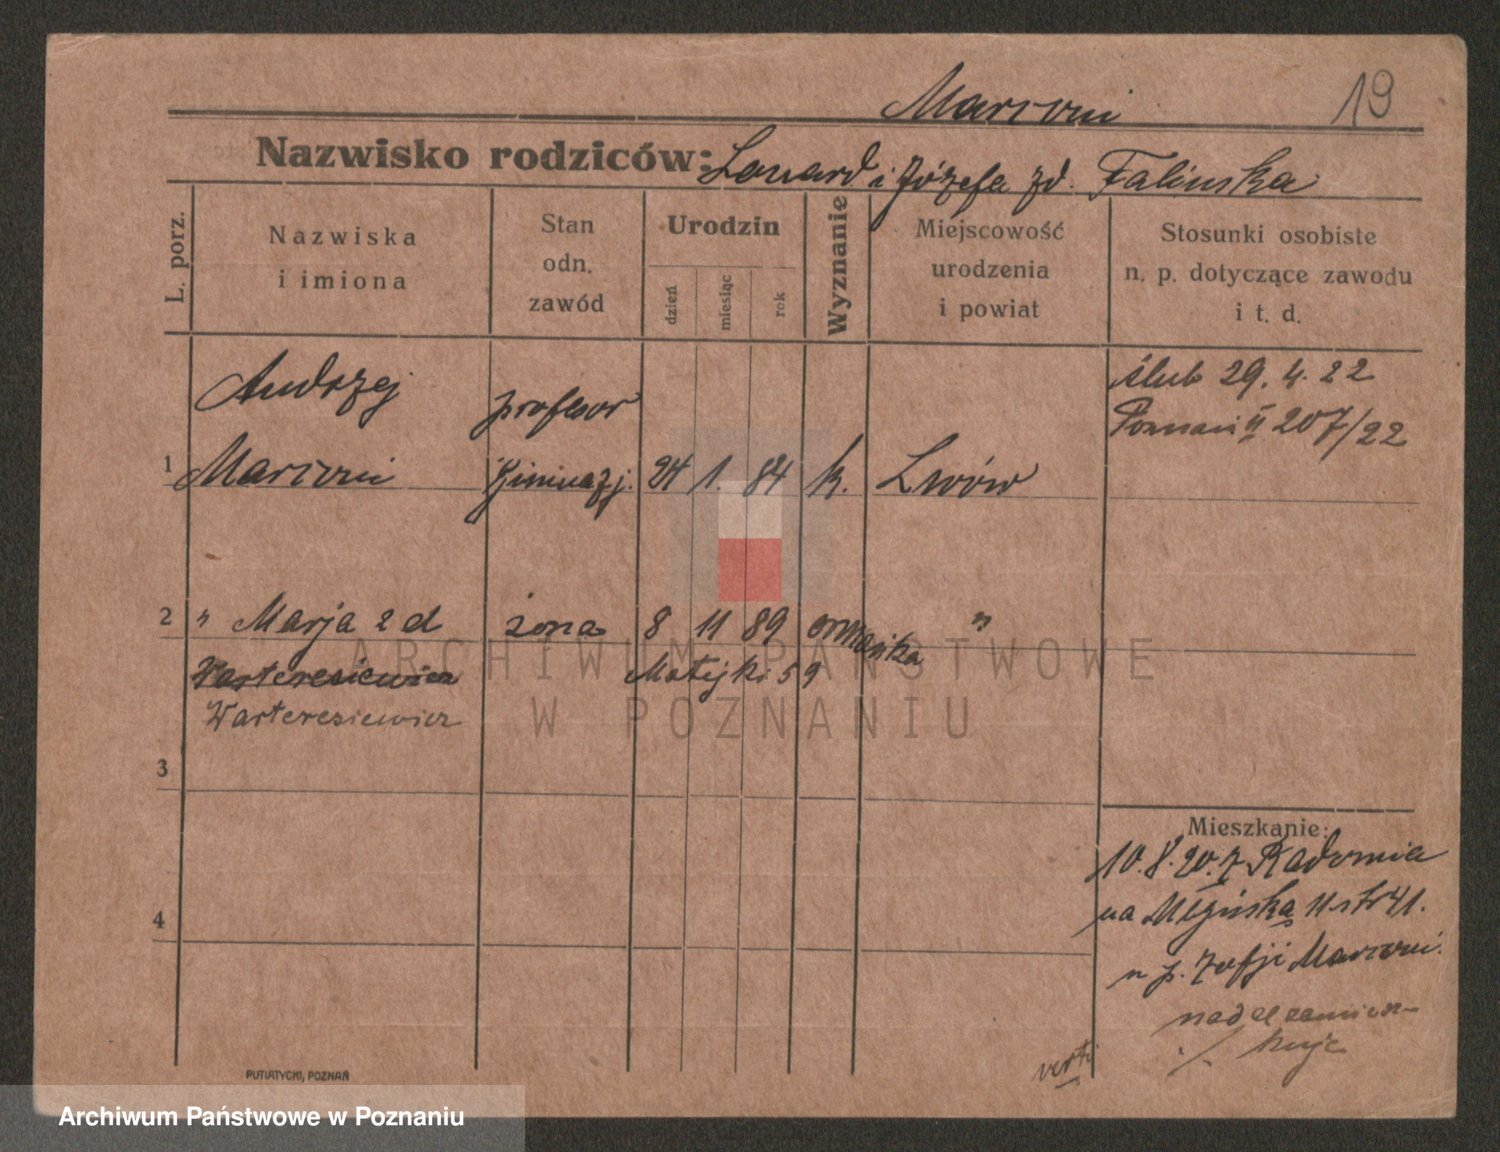 Marconi 19
Nazwisko rodziców: Lonard i Józefa zd. Falinska
L. porz.
Nazwiska
i imiona
Stan
odn.
zawód
Urodzin
dzień
miesiąc
rok
Wyznanie
Miejscowość
urodzenia
i powiat
Stosunki osobiste
n. p. dotyczące zawodu
i t. d.
Andrzej profesor ślub 29. 4. 22
Poznań II 207/22
1 Marconi Gimnazj. 24 1. 84 k. Lwów
2 " Marja zd żona 8 11 89 ormańska "
Warteresiewicz Matejki 59
Warteresiewicz
3
4
Mieszkanie:
10.8.20. z Radomia
na 11 str 41.
u p. Zofji Marconi.
nadal zamiesz-
kuje
verti
PUTIATYCKI, POZNAŃ
ARCHIWUM PAŃSTWOWE
W POZNANIU
Archiwum Państwowe w Poznaniu